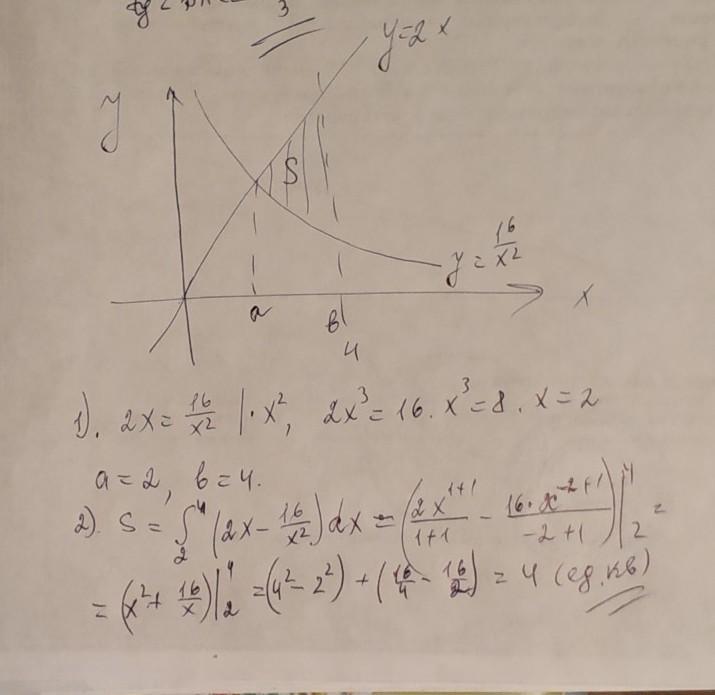 3
y=2x
y
S
y = 16/x²
a
в
4
x
1). 2x = 16/x² | · x², 2x³ = 16. x³ = 8. x = 2
a = 2, в = 4.
2). S = ∫₂⁴ (2x − 16/x²) dx = (2x¹⁺¹/1+1 − 16·x⁻²⁺¹/−2+1)|₂⁴ =
= (x² + 16/x)|₂⁴ = (4² − 2²) + (16/4 − 16/2) = 4 (ед.кв)